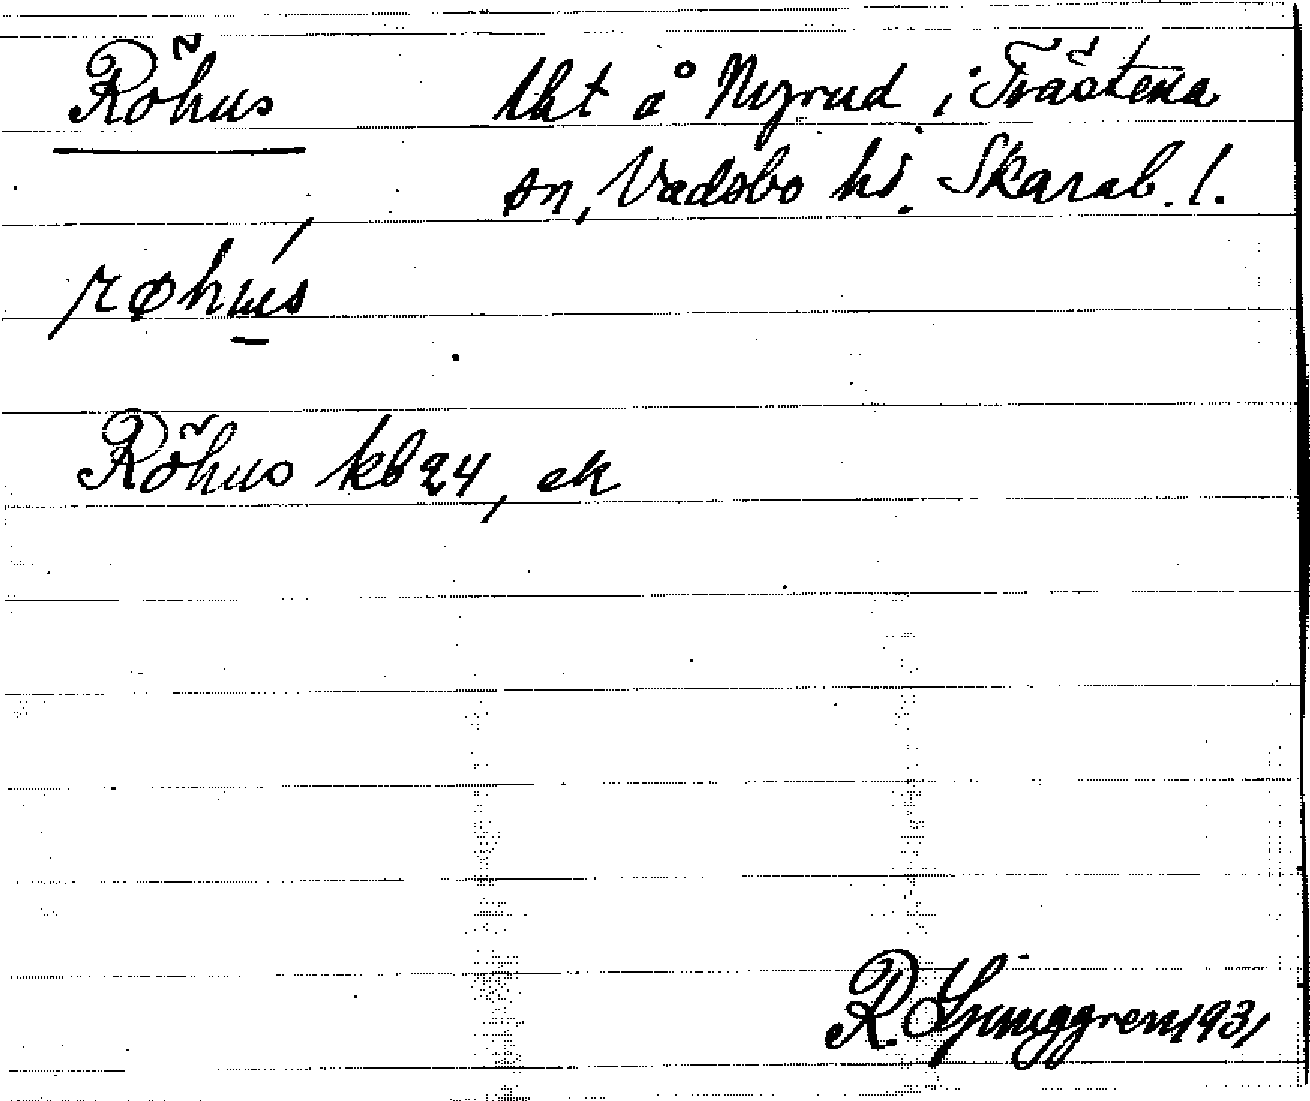 Röhus lht å Nyrud i Trästena
sn, Vadsbo hd. Skarab. l.
røhus
Röhus kb 24, ek
R. Ljunggren 1931